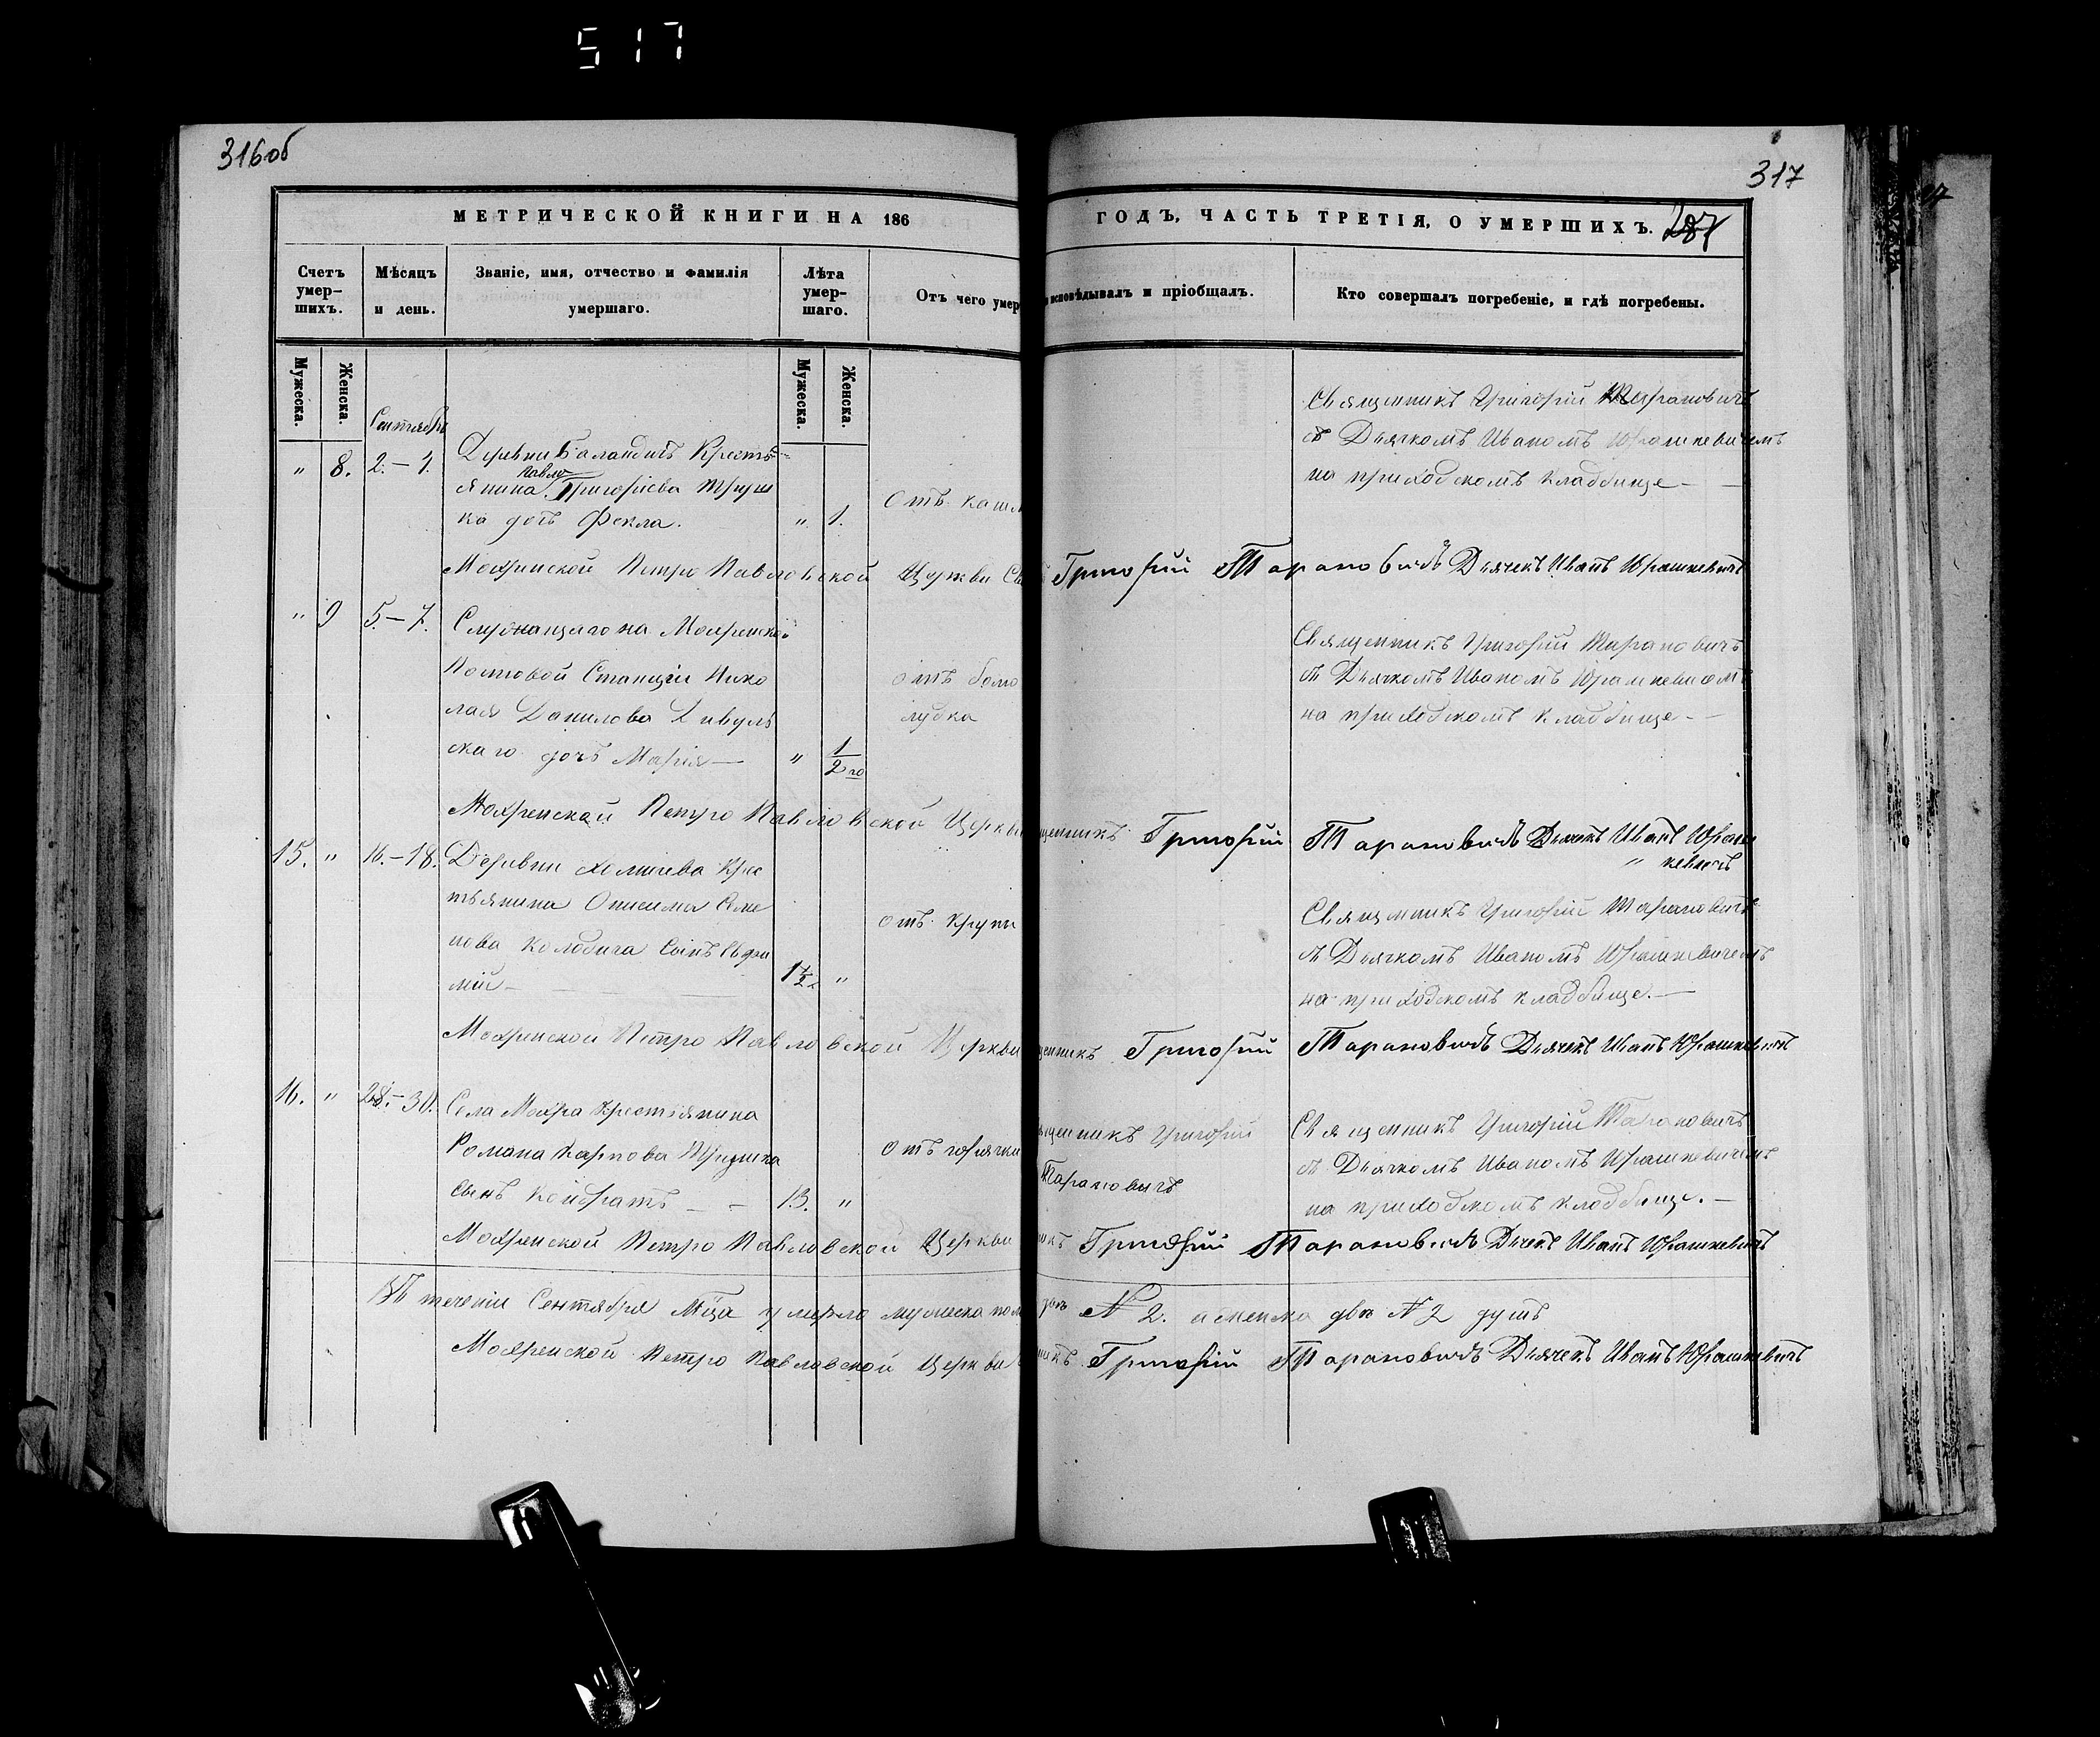 517
316об
317
МЕТРИЧЕСКОЙ КНИГИ НА 186
ГОДЪ, ЧАСТЬ ТРЕТІЯ, О УМЕРШИХЪ.
287
Счетъ умер-шихъ.
Мѣсяцъ и день.
Званіе, имя, отчество и фамилія умершаго.
Лѣта умер-шаго.
Отъ чего умер
исповѣдывалъ и пріобщалъ.
Кто совершалъ погребеніе, и гдѣ погребены.
Мужеска.
Женска.
Мужеска.
Женска.
Сентябрь
" 8. 2.–4. Деревни Баландичъ Кресть-
Павла
янина Григоріева
ка дочь Фекла. " 1.
Отъ кашл
Священникъ Григорій Тарановичъ
съ Дьячкомъ Иваномъ Юрашкевичемъ
на приходскомъ кладбище –
Мохренской Петро Павловской Церкви Св
Григорій Тарановичъ Дьячекъ Иванъ Юрашкевичъ
" 9 5.–7. Служащаго на Мохренской
Почтовой Станціи Нико
лая Данилова
скаго дочь Марія – " 1/2 го
отъ боли
Священникъ Григорій Тарановичъ
съ Дьячкомъ Иваномъ Юрашкевичемъ
на приходскомъ кладбище –
Мохренской Петро Павловской Церкви
щенникъ Григорій Тарановичъ Дьячекъ Иванъ Юраш
кевичъ
15. " 16.–18. Деревни Хомичева Крес
тьянина Онисима Семе
нова Колодича сынъ Ефи
мій – 1½ "
отъ крупи
Священникъ Григорій Тарановичъ
съ Дьячкомъ Иваномъ Юрашкевичемъ
на приходскомъ кладбище. –
Мохренской Петро Павловской Церкви
щенникъ Григорій Тарановичъ Дьячекъ Иванъ Юрашкевичъ
16. " 28.–30. Села Мохра Крестьянина
Романа Карпова
сынъ Кондратъ – – 13. "
Отъ горячки
щенникъ Григорій
Тарановичъ
Священникъ Григорій Тарановичъ
съ Дьячкомъ Иваномъ Юрашкевичемъ
на приходскомъ кладбище. –
Мохренской Петро Павловской Церкви
икъ Григорій Тарановичъ Дьячекъ Иванъ Юрашкевичъ
Въ теченіи Сентября Мѣца умерло мужеска пол
№ 2. а женска двѣ № 2 душъ
Мохренской Петро Павловской Церкви
никъ Григорій Тарановичъ Дьячекъ Иванъ Юрашкевичъ